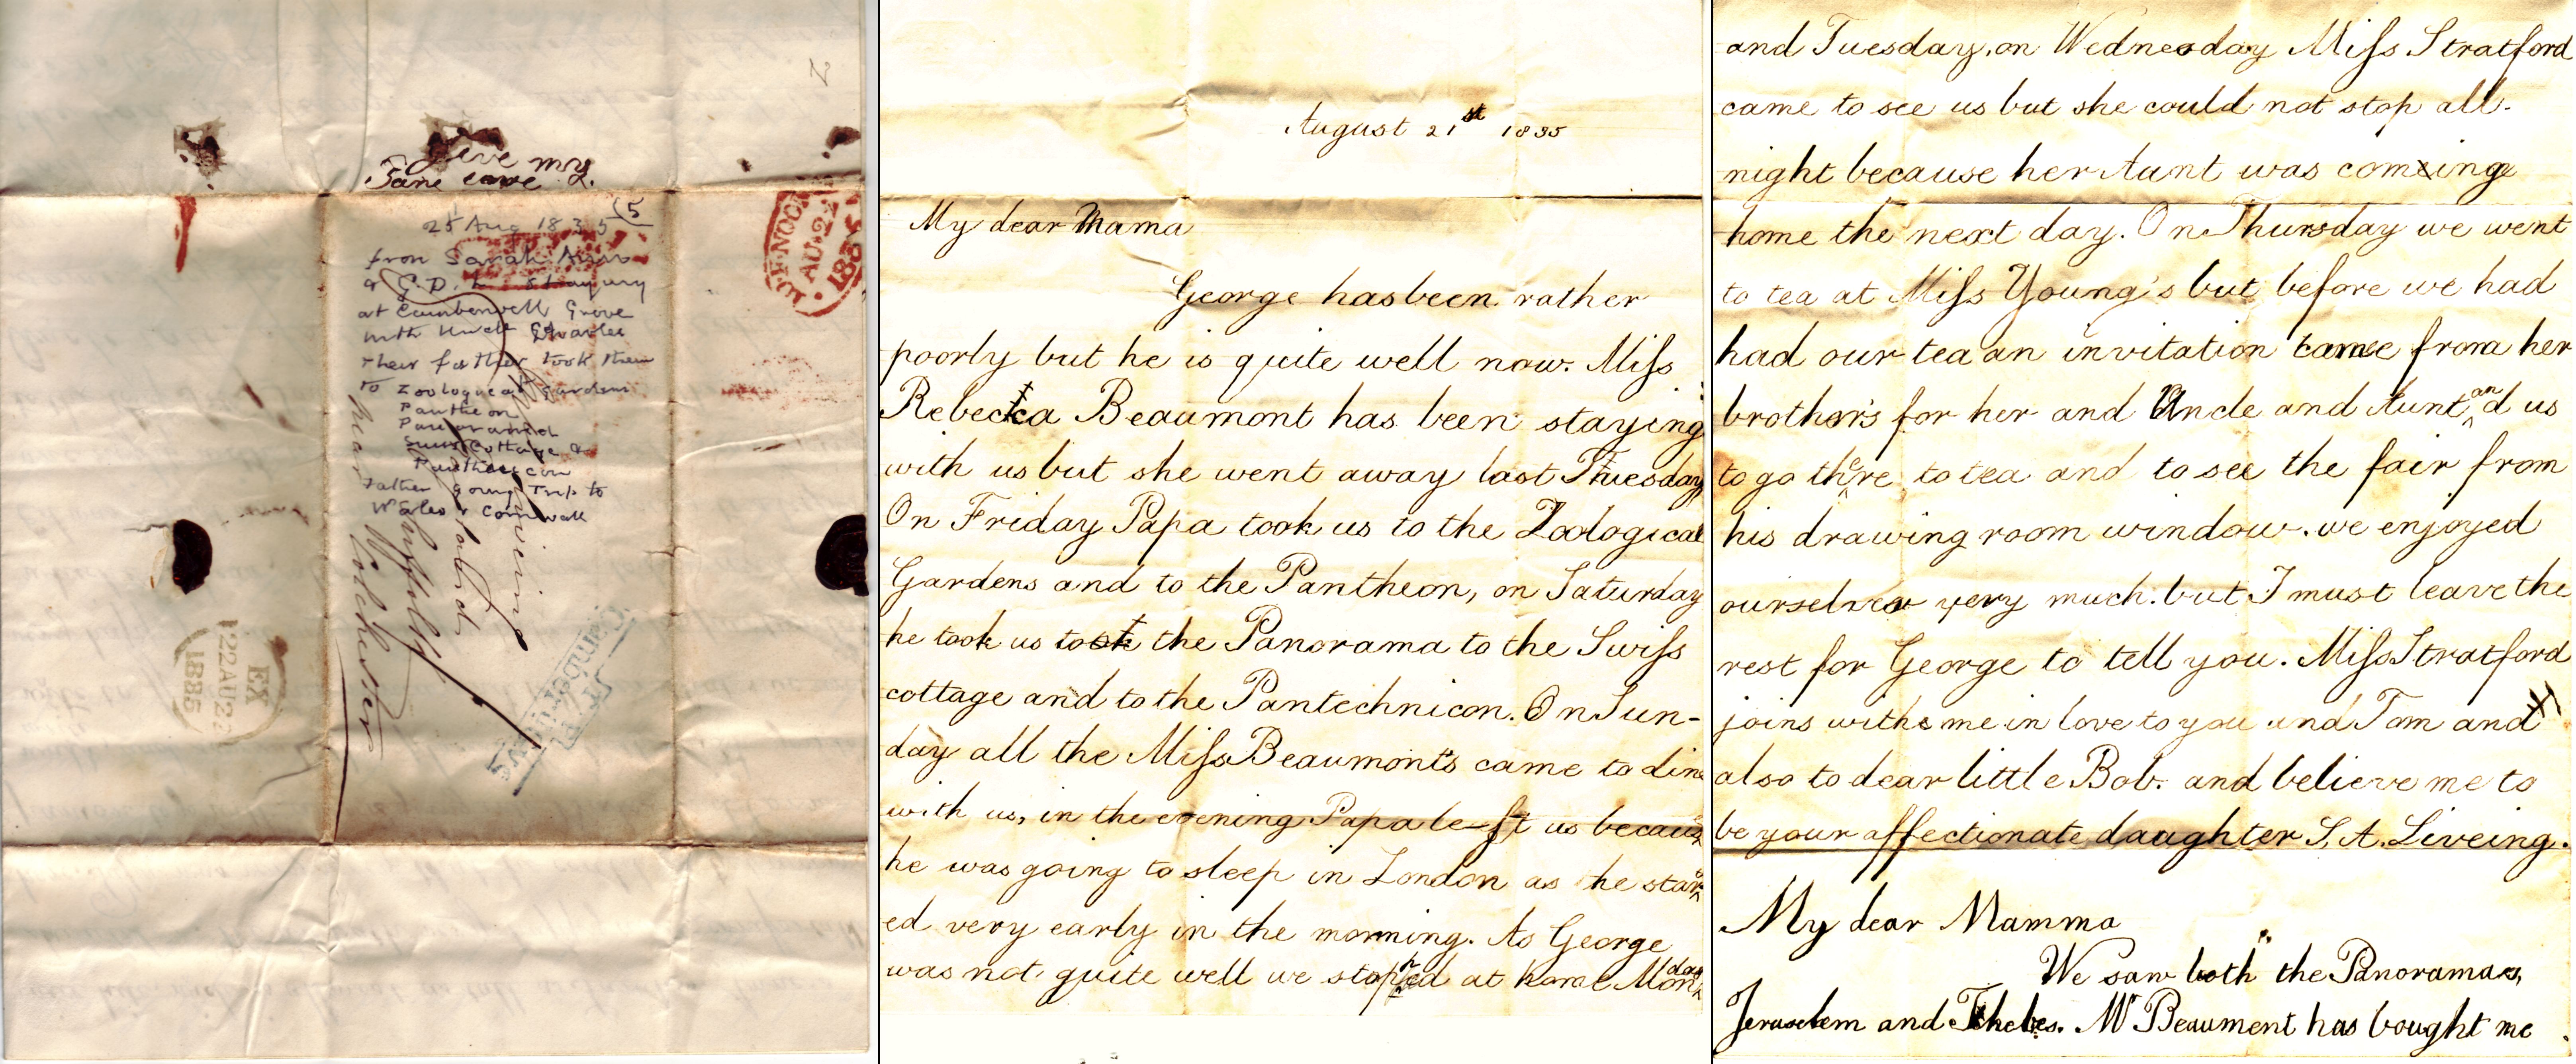 give my
Jane love &.
(5
25 Aug 1835
from Sarah Ann
& G.D. L
at Camberwell Grove
with Uncle Charles
their father took them
to Zoological Gardens
Pantheon
Panorama
Swiss Cottage &
Panthecicon
Father going Trip to
Wales & Cornwall
Liveing
Nayland
Suffolk
near Colchester
AU 22
1835
EX
22 AU 22
1835
T.P
Camberwell
August 21st 1835
My dear Mama
George has been rather
poorly but he is quite well now. Miss
Rebecca Beaumont has been staying
with us but she went away last Tuesday
On Friday Papa took us to the Zoological
Gardens and to the Pantheon, on Saturday
he took us to the Panorama to the Swiss
cottage and to the Pantechnicon. On Sun-
day all the Miss Beaumonts came to dine
with us, in the evening Papa left us because
he was going to sleep in London as he start
ed very early in the morning. As George
was not quite well we stopped at home Monday
and Tuesday, on Wednesday Miss Stratford
came to see us but she could not stop all-
night because her Aunt was coming
home the next day. On Thursday we went
to tea at Miss Young's but before we had
had our tea an invitation came from her
brother's for her and Uncle and Aunt and us
to go there to tea and to see the fair from
his drawing room window. we enjoyed
ourselves very much. but I must leave the
rest for George to tell you. Miss Stratford
joins with me in love to you and Tom and
also to dear little Bob. and believe me to
be your affectionate daughter S. A. Liveing.
My dear Mamma
We saw both the Panoramas,
Jeruselem and Thebes. Mr Beaument has bought me